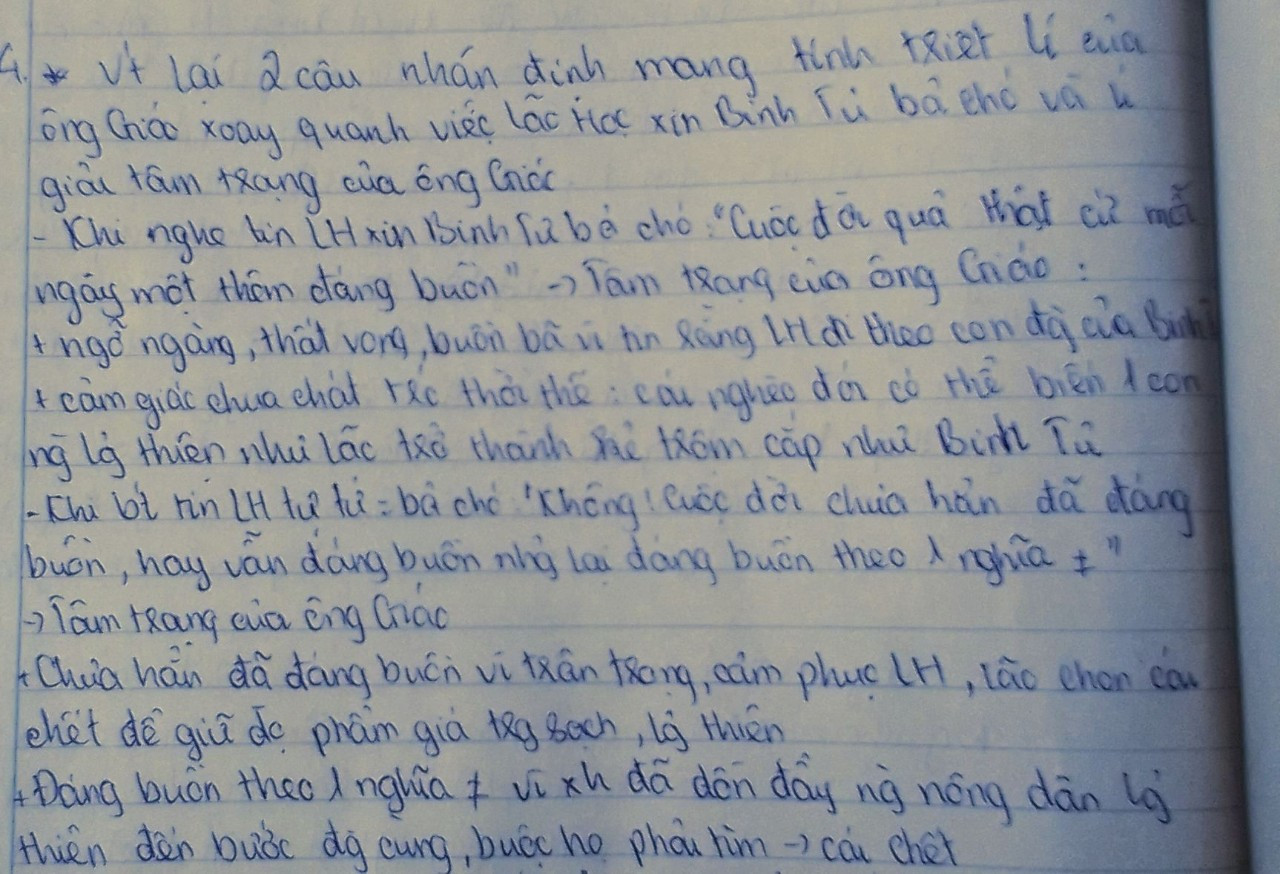 4. * Vt lại 2 câu nhán định mang tính triết lí của
ông Giáo xoay quanh việc lão Hạc xin Binh Tư bả chó và lí
giải tâm trạng của ông Giáo
- Khi nghe tin LH xin Binh Tư bả chó: "Cuộc đời quả thật cứ mỗi
ngày một thêm đáng buồn" -> Tâm trạng của ông Giáo :
+ ngỡ ngàng, thất vọng, buồn bã vì tin rằng LH đi theo con đg của Binh
+ cảm giác chua chát trc thời thế : cái nghèo đói có thể biến 1 con
ng lg thiện như lão trở thành kẻ trộm cắp như Binh Tư
- Khi bt tin LH tự tử = bả chó "Không! Cuộc đời chưa hẳn đã đáng
buồn, hay vẫn đáng buồn nhg lại đáng buồn theo 1 nghĩa ≠"
-> Tâm trạng của ông Giáo
+ Chưa hẳn đã đáng buồn vì trân trọng, cảm phục LH, lão chọn cái
chết để giữ đc phẩm giá trg sạch, lg thiện
+ Đáng buồn theo 1 nghĩa ≠ vì xh đã dồn đẩy ng nông dân lg
thiện đến bước đg cùng, buộc họ phải tìm -> cái chết